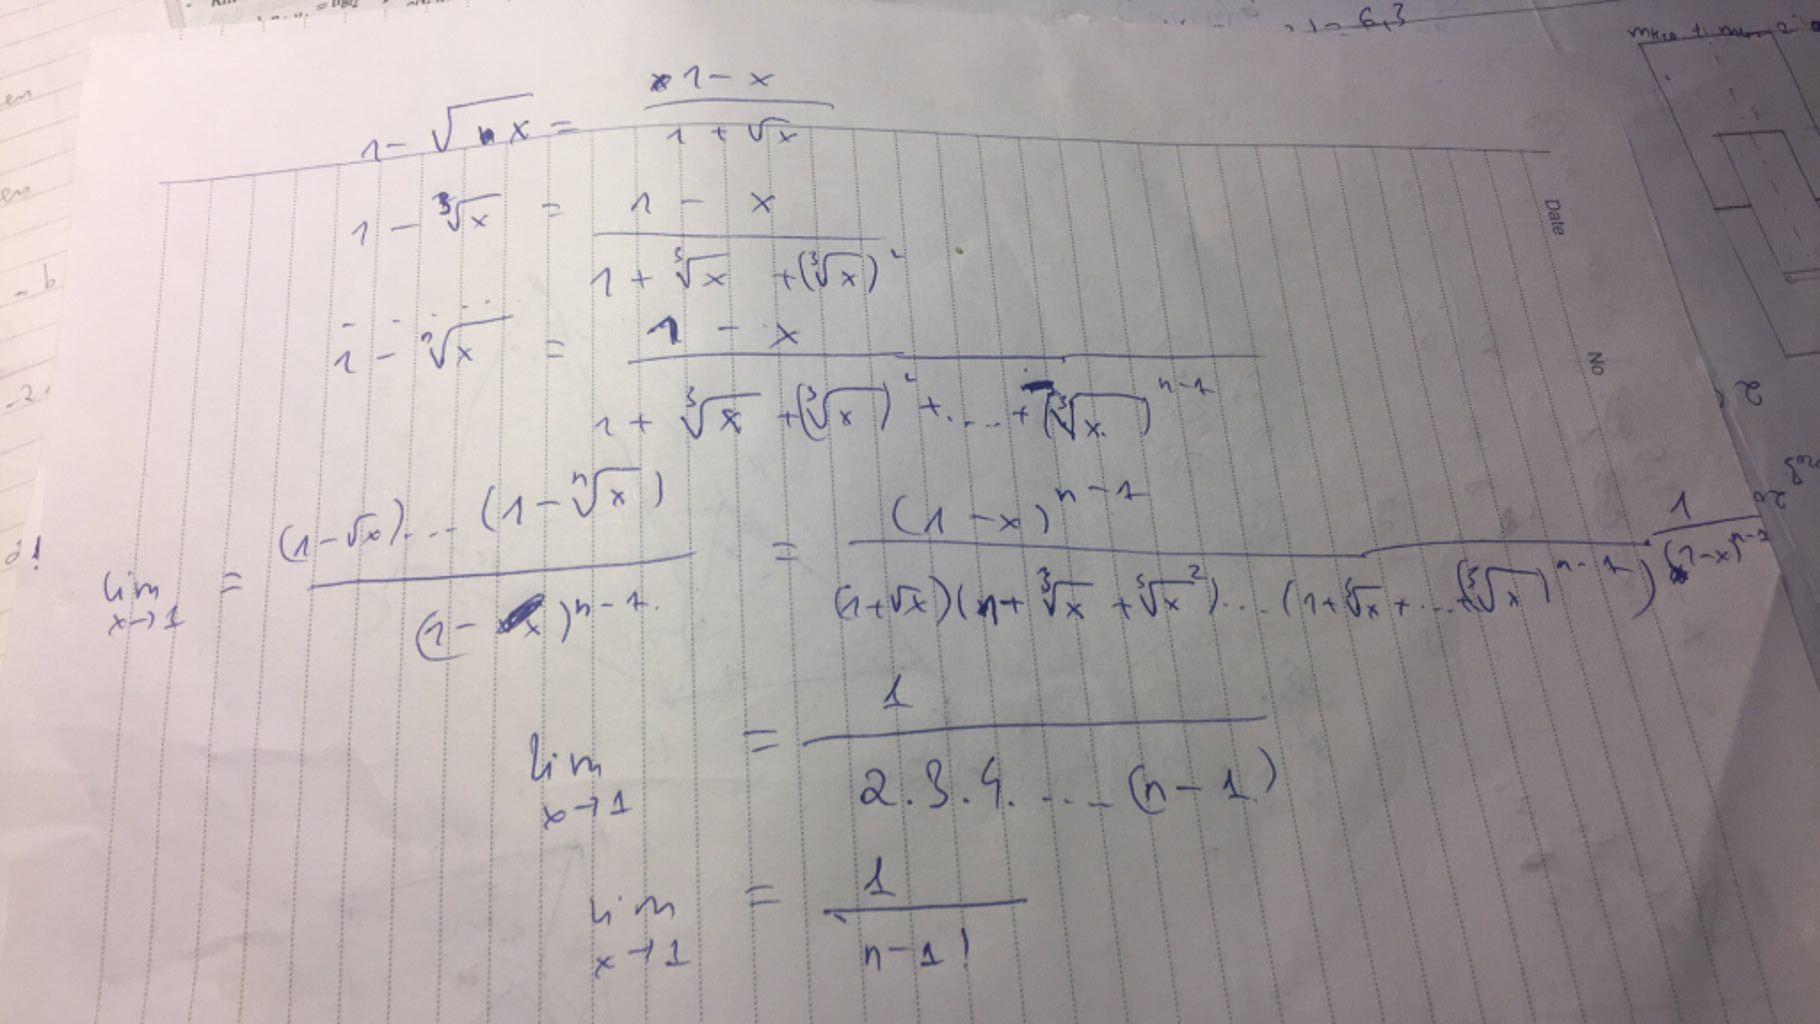 1 - √x = (1 - x) / (1 + √x)
1 - ³√x = (1 - x) / (1 + ³√x + (³√x)²)
- - - - -
1 - ⁿ√x = (1 - x) / (1 + ³√x + (³√x)² + .... + (³√x)ⁿ⁻¹)
lim x→1 = ((1-√x)... (1 - ⁿ√x)) / (1 - x)ⁿ⁻¹ = (1 - x)ⁿ⁻¹ / ((1+√x)(1+ ³√x + ³√x²)... (1+ ³√x + ... + (³√x)ⁿ⁻¹)) · 1 / (1-x)ⁿ⁻¹
lim x→1 = 1 / (2.3.4. .... (n-1))
lim x→1 = 1 / (n-1!)
Date
No